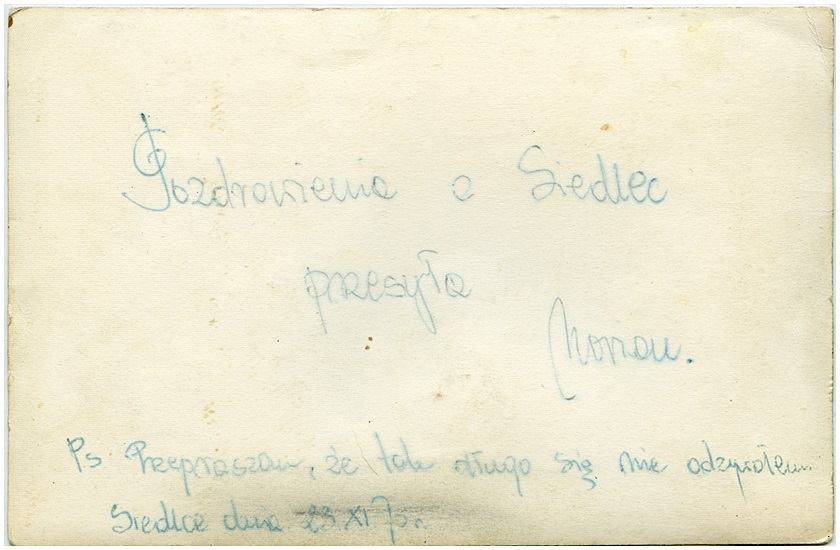 Pozdrowienia z Siedlec
przesyła
Marian.
Ps Przepraszam, że tak długo się nie odzywałem
Siedlce dnia 23.XI 7